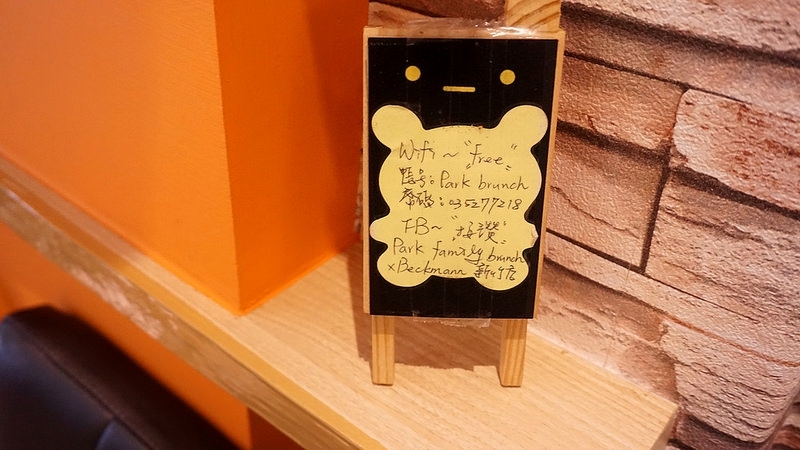 Wifi~"free"
帳號:Park brunch
密碼:035277218
FB~"按讚"
Park family brunch
×Beckmann 新竹店